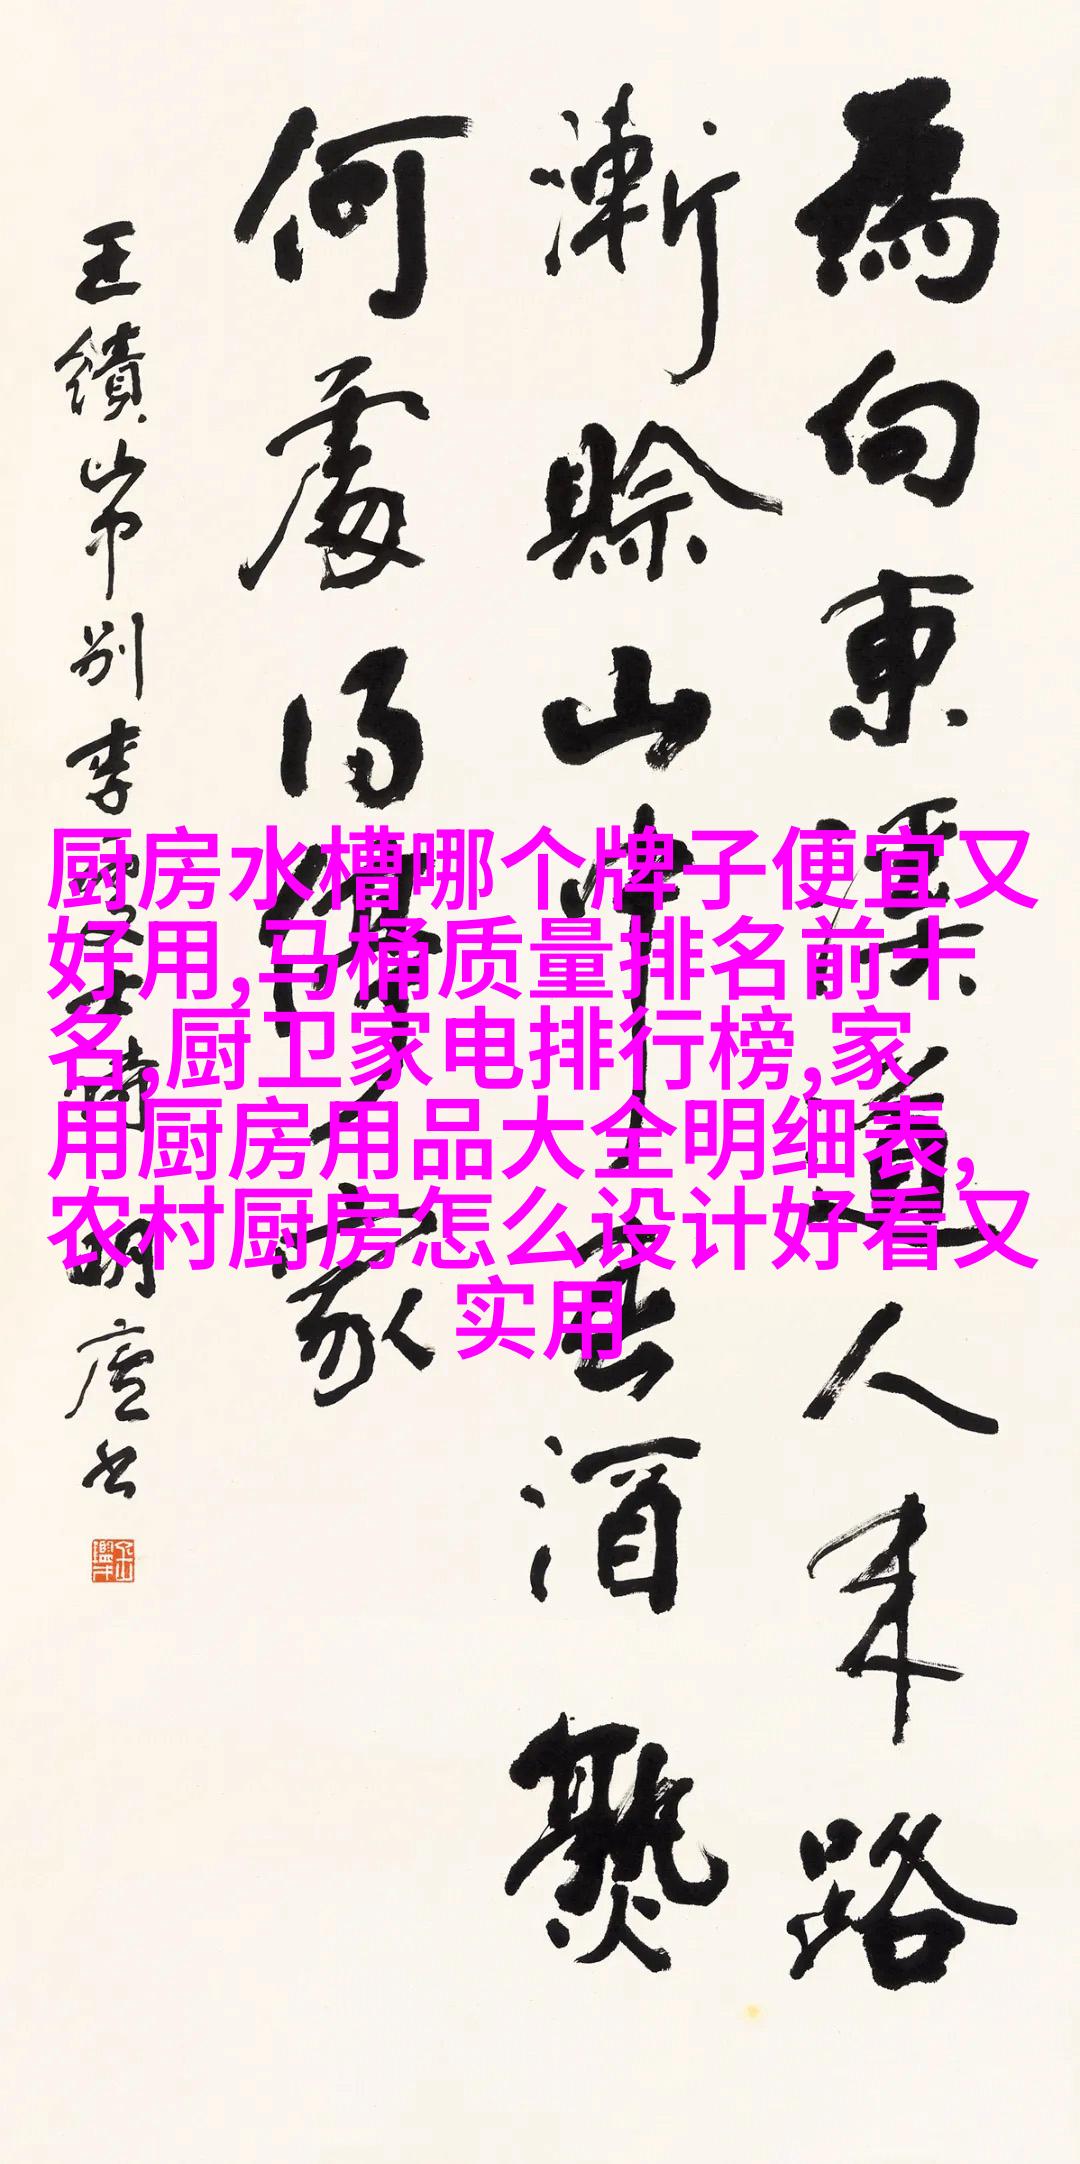 為向東溪道人來路
漸賒山中春酒熟
何處得停家
王績山中別李處士詩 明廬書
厨房水槽哪个牌子便宜又
好用,马桶质量排名前十
名,厨卫家电排行榜,家
用厨房用品大全明细表,
农村厨房怎么设计好看又
实用